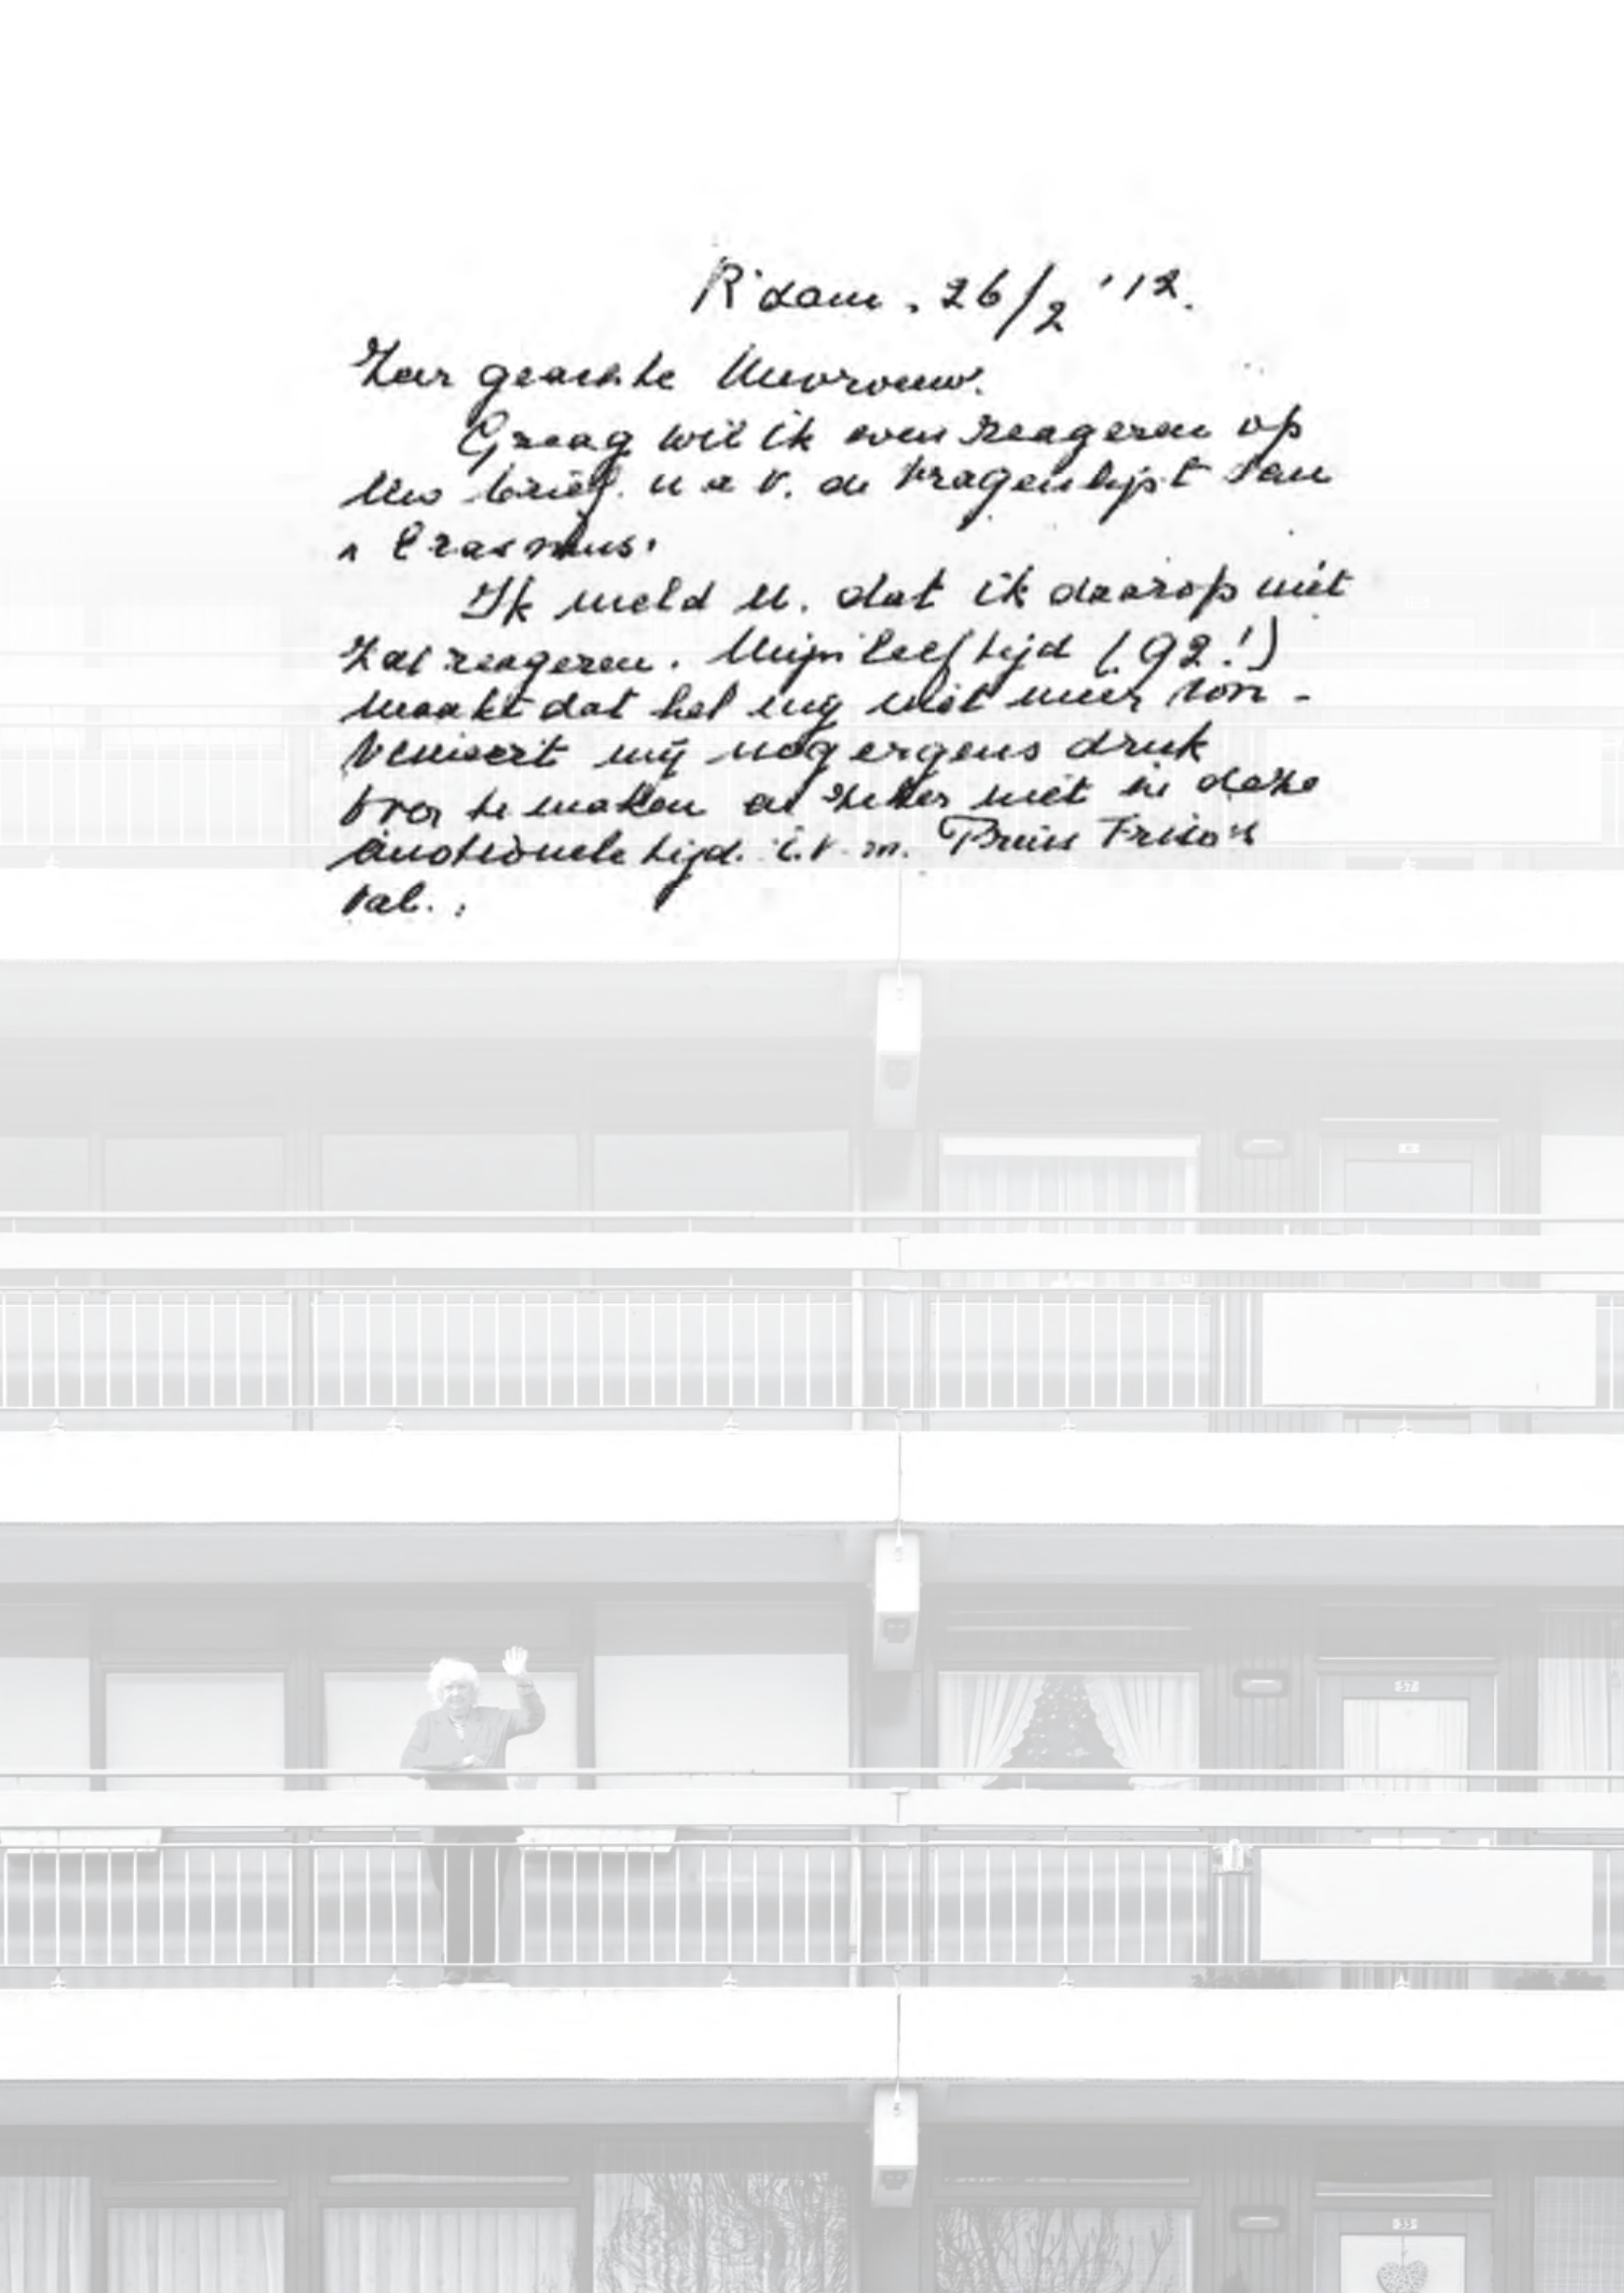 R'dam. 26/2 '12.
Zeer geachte Mevrouw.
Graag wil ik even reageren op
Uw brief. n a v. de vragenlijst van
Erasmus.
Ik meld U. dat ik daarop niet
zal reageren. Mijn leeftijd (92!)
maakt dat het mij niet meer con-
venieert mij nog ergens druk
over te maken en zeker niet in deze
emotionele tijd. i.v.m. Prins Friso's
val.
57
33